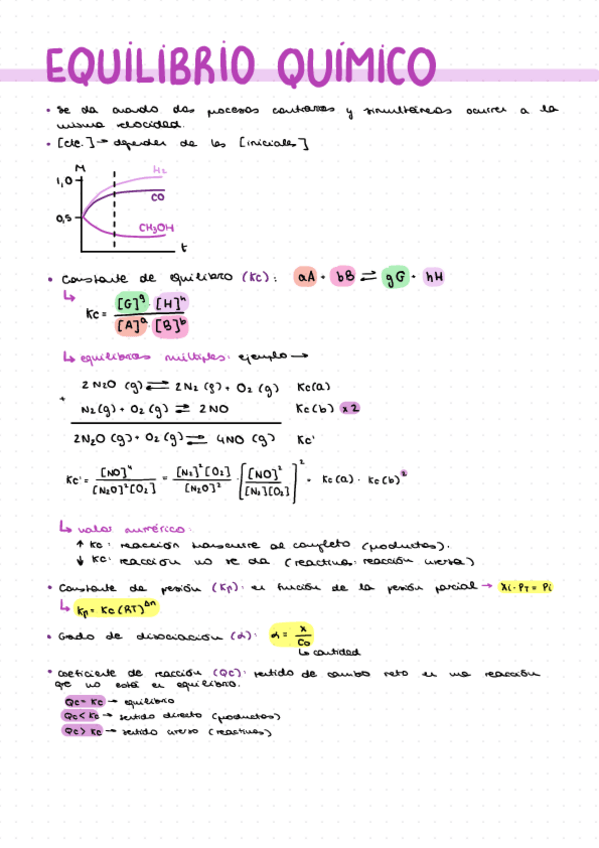 EQUILIBRIO QUÍMICO
• Se da cuando dos procesos contrarios y simultáneos ocurren a la
misma velocidad.
• [cte.] → depender de las [iniciales]
M
1,0
0,5
H₂
CO
CH₃OH
t
• Constante de equilibrio (Kc): aA + bB ⇌ gG + hH
↳ Kc = [G]^g · [H]^h / [A]^a · [B]^b
↳ equilibrios múltiples: ejemplo →
2 N₂O (g) ⇌ 2 N₂ (g) + O₂ (g) Kc(a)
+ N₂(g) + O₂ (g) ⇌ 2 NO Kc(b) x2
2N₂O (g) + O₂ (g) ⇌ 4NO (g) Kc'
Kc' = [NO]⁴ / [N₂O]²[O₂] = [N₂]²[O₂] / [N₂O]² · [[NO]² / [N₂][O₂]]² = Kc(a) · Kc(b)²
↳ valor numérico:
↑ Kc: reacción transcurre al completo (productos).
↓ Kc: reacción no se da (reactivos: reacción inversa)
• Constante de presión (Kp): en función de la presión parcial → Xi · PT = Pi
↳ Kp = Kc (RT)^Δn
• Grado de disociación (α): α = x / Co
↳ cantidad
• Coeficiente de reacción (Qc): sentido de cambio neto en una reacción
que no está en equilibrio.
Qc = Kc → equilibrio
Qc < Kc → sentido directo (productos)
Qc > Kc → sentido inverso (reactivos)